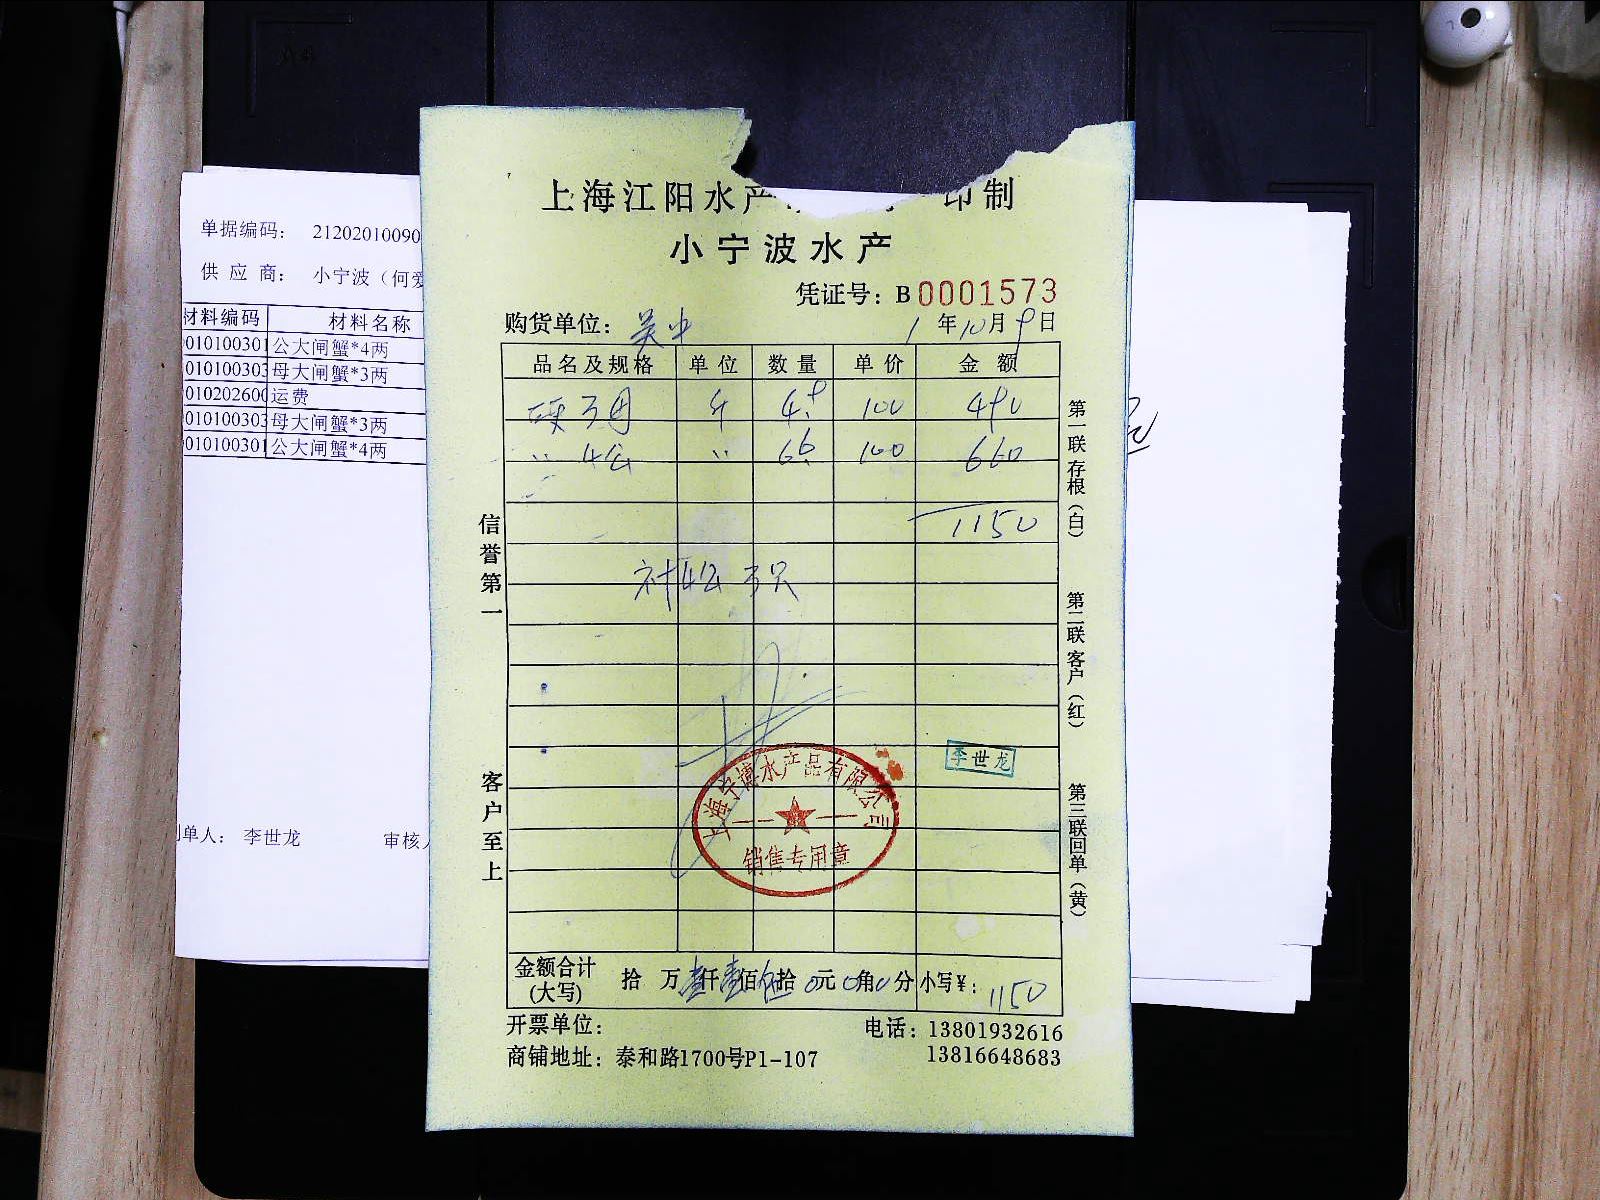 上海江阳水产 印制
小宁波水产
凭证号：B0001573
购货单位：吴中 1年10月9日
品名及规格 单位 数量 单价 金额
硬3母 斤 4.9 100 490
〃 4公 〃 6.6 100 660
1150
补4公 3只
信誉第一
客户至上
第一联存根（白）
第二联客户（红）
第三联回单（黄）
李世龙
上海宁博水产品有限公司
销售专用章
金额合计(大写) 拾 万壹仟壹佰伍拾0元0角0分 小写¥：1150
开票单位： 电话：13801932616
商铺地址：泰和路1700号P1-107 13816648683
单据编码： 21202010090
供应商： 小宁波（何爱
材料编码 材料名称
010100301 公大闸蟹*4两
010100303 母大闸蟹*3两
010202600 运费
010100303 母大闸蟹*3两
010100301 公大闸蟹*4两
制单人： 李世龙 审核人